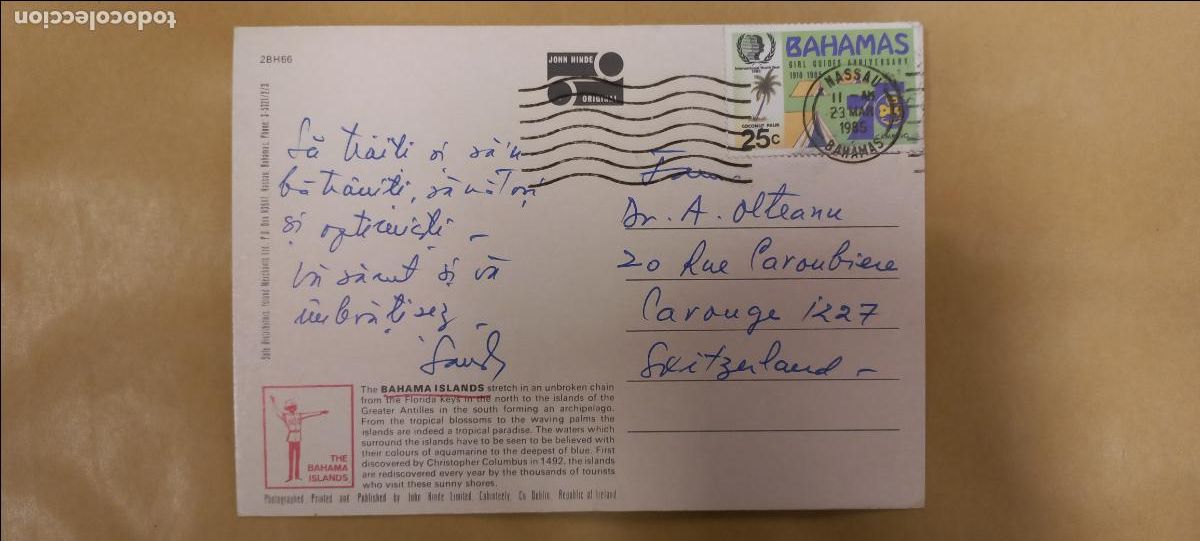 todocoleccion
2BH66
JOHN HINDE
ORIGINAL
BAHAMAS
GIRL GUIDES ANNIVERSARY
1910 1985
International Youth Year
1985
COCONUT PALM
25c
NASSAU
11 AM
23 MAR
1985
BAHAMAS
Să trăiți și să'n
bătrâniți, sănătoși
și optimiști –
Vă sărut și vă
îmbrățișez –
Dr. A. Olteanu
20 Rue Caroubiere
Carouge 1227
Switzerland –
The BAHAMA ISLANDS stretch in an unbroken chain
from the Florida Keys in the north to the islands of the
Greater Antilles in the south forming an archipelago.
From the tropical blossoms to the waving palms the
islands are indeed a tropical paradise. The waters which
surround the islands have to be seen to be believed with
their colours of aquamarine to the deepest of blue. First
discovered by Christopher Columbus in 1492, the islands
are rediscovered every year by the thousands of tourists
who visit these sunny shores.
THE
BAHAMA
ISLANDS
Photographed Printed and Published by John Hinde Limited, Cabinteely, Co Dublin, Republic of Ireland
Sole Distributors, Island Merchants Ltd., P.O. Box Nassau, Bahamas. Phone: